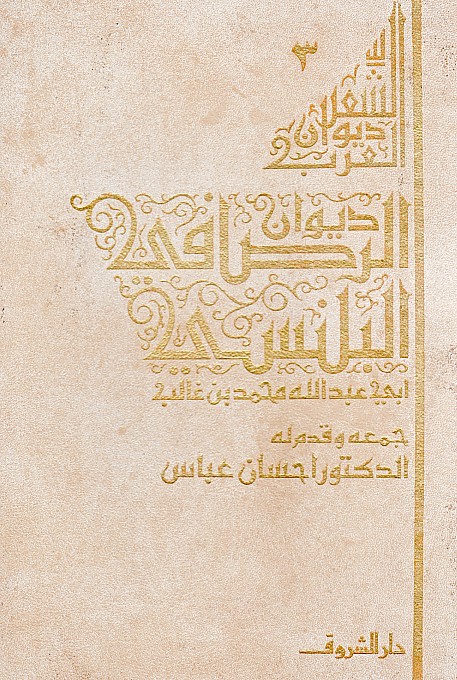 ٣
الشعر
ديوان
العرب
ديوان
الرصافي
البلنسي
ابي عبد الله محمد بن غالب
جمعه وقدم له
الدكتور احسان عباس
دار الشروق